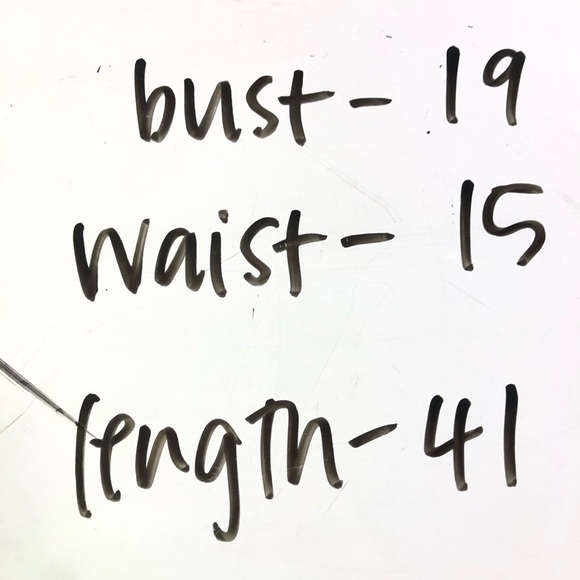 bust - 19
waist - 15
length - 41